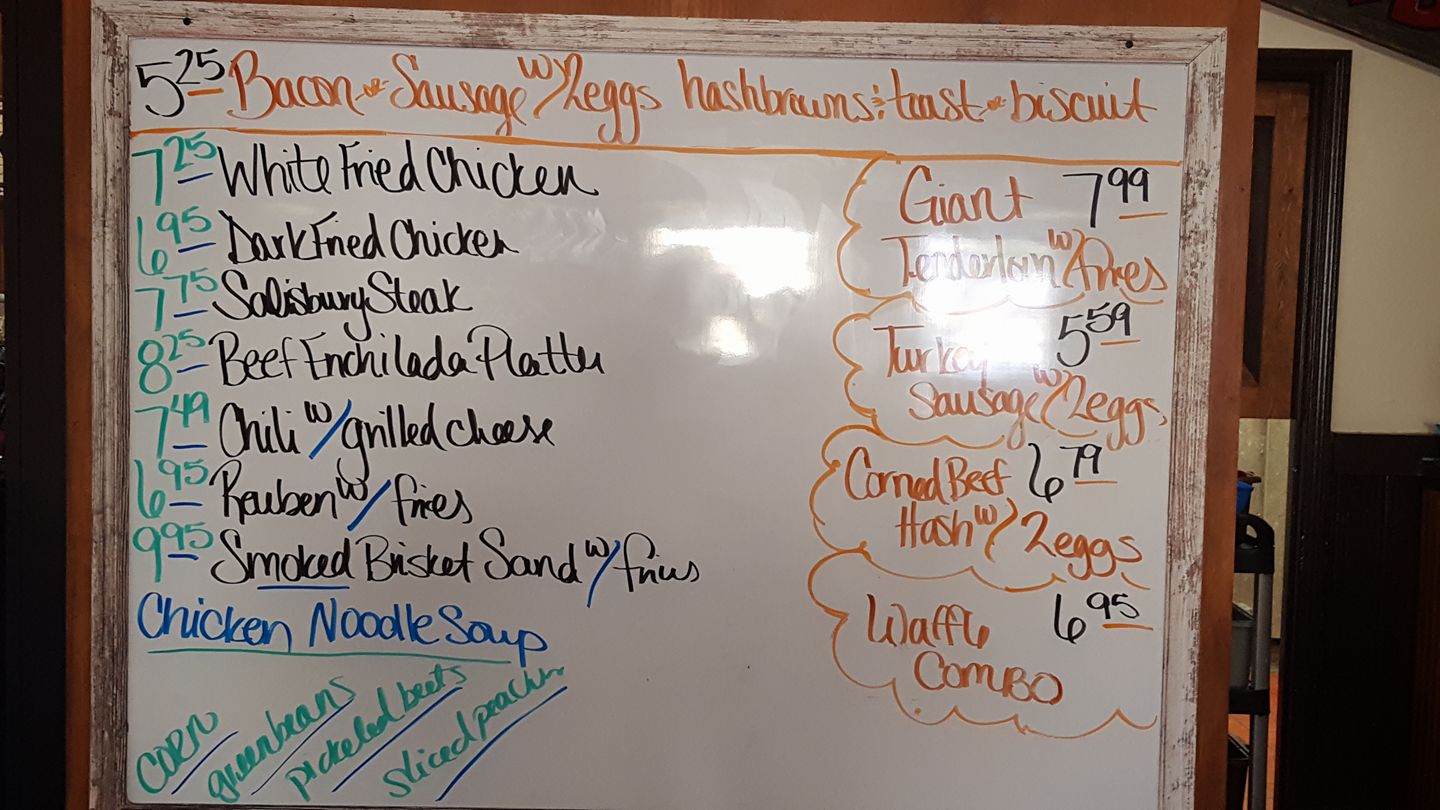 5 25 Bacon or Sausage w/ 2eggs hashbrowns & toast or biscuit
7 25 White Fried Chicken
6 95 Dark Fried Chicken
7 75 Salisbury Steak
8 25 Beef Enchilada Platter
7 49 Chili w/ grilled cheese
6 95 Reuben w/ fries
9 95 Smoked Brisket Sand w/ fries
Chicken Noodle Soup
CORN
green beans
pickeled beets
sliced peaches
Giant 7 99
Tenderloin w/ Fries
Turkey 5 59
Sausage w/ 2eggs
Corned Beef 6 79
Hash w/ 2eggs
Waffle 6 95
COMBO